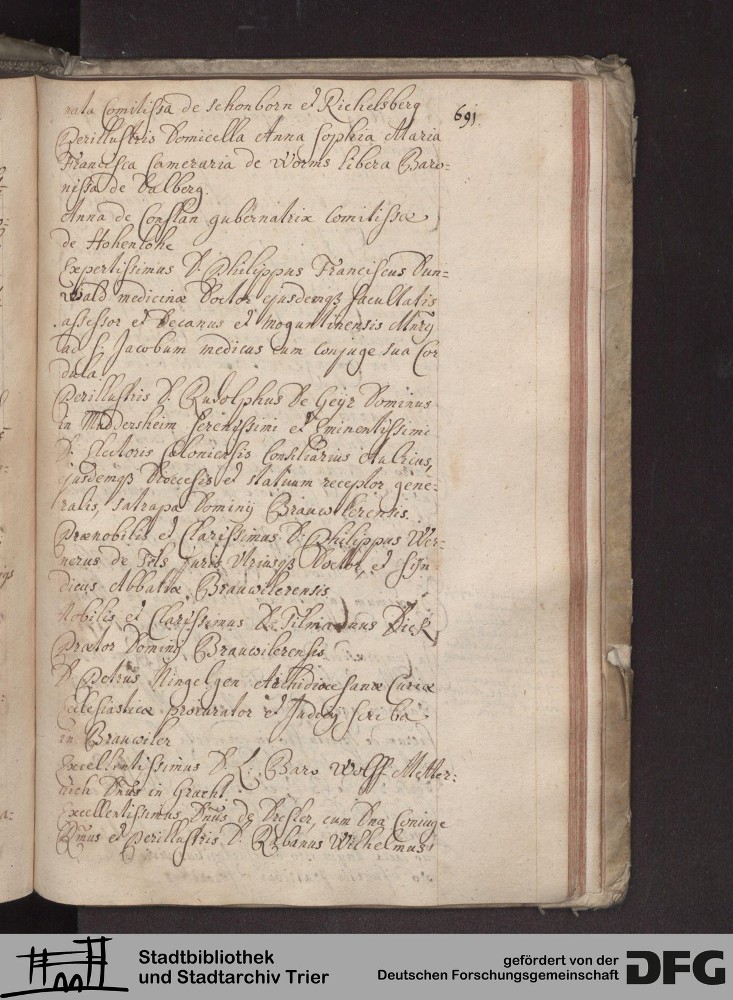 nata Comitissa de schonborn et Richelsberg
691
Perillustris Domicella Anna Sophia Maria
Francisca Cameraria de Worms libera Baro=
nissa de Dalberg.
Anna de Constan gubernatrix Comitissæ
de Hohenlohe
Expertissimus D. Philippus Franciscus Dun=
wald medicinæ Doctor ejusdemq3 facultatis
assessor et Decanus et Moguntinensis
ad S. Jacobum medicus cum conjuge sua Cor
dula
Perillustris D. Rudolphus De Geyr Dominus
in Müddersheim serenissimi et Eminentissimi
D. Electoris Coloniensis Consiliarius Aulicus,
ejusdemq3 Dioecesis et statuum receptor gene=
ralis, satrapa Dominij Brauwilerensis.
Prænobilis et Clarissimus D. Philippus Wer=
nerus de Tils juris Utriusq3 Doctor, et syn
dicus Abbatiæ Brauwilerensis
Nobilis et Clarissimus D. Tilmannus Dick
Prætor Dominij Brauwilerensis
D. Petrus Ningelgen Archidioecesanæ Curiæ
Ecclesiasticæ procurator et Judicij scriba
in Brauwiler
Excellentissimus D. L. Baro Wolff-Metter=
nich Dnus in Gracht
Excellentissimus Dnus de Dresler, cum Dna Coniuge
Rmus et Perillustris D. Rabanus Wilhelmus
Stadtbibliothek
und Stadtarchiv Trier
gefördert von der
Deutschen Forschungsgemeinschaft
DFG